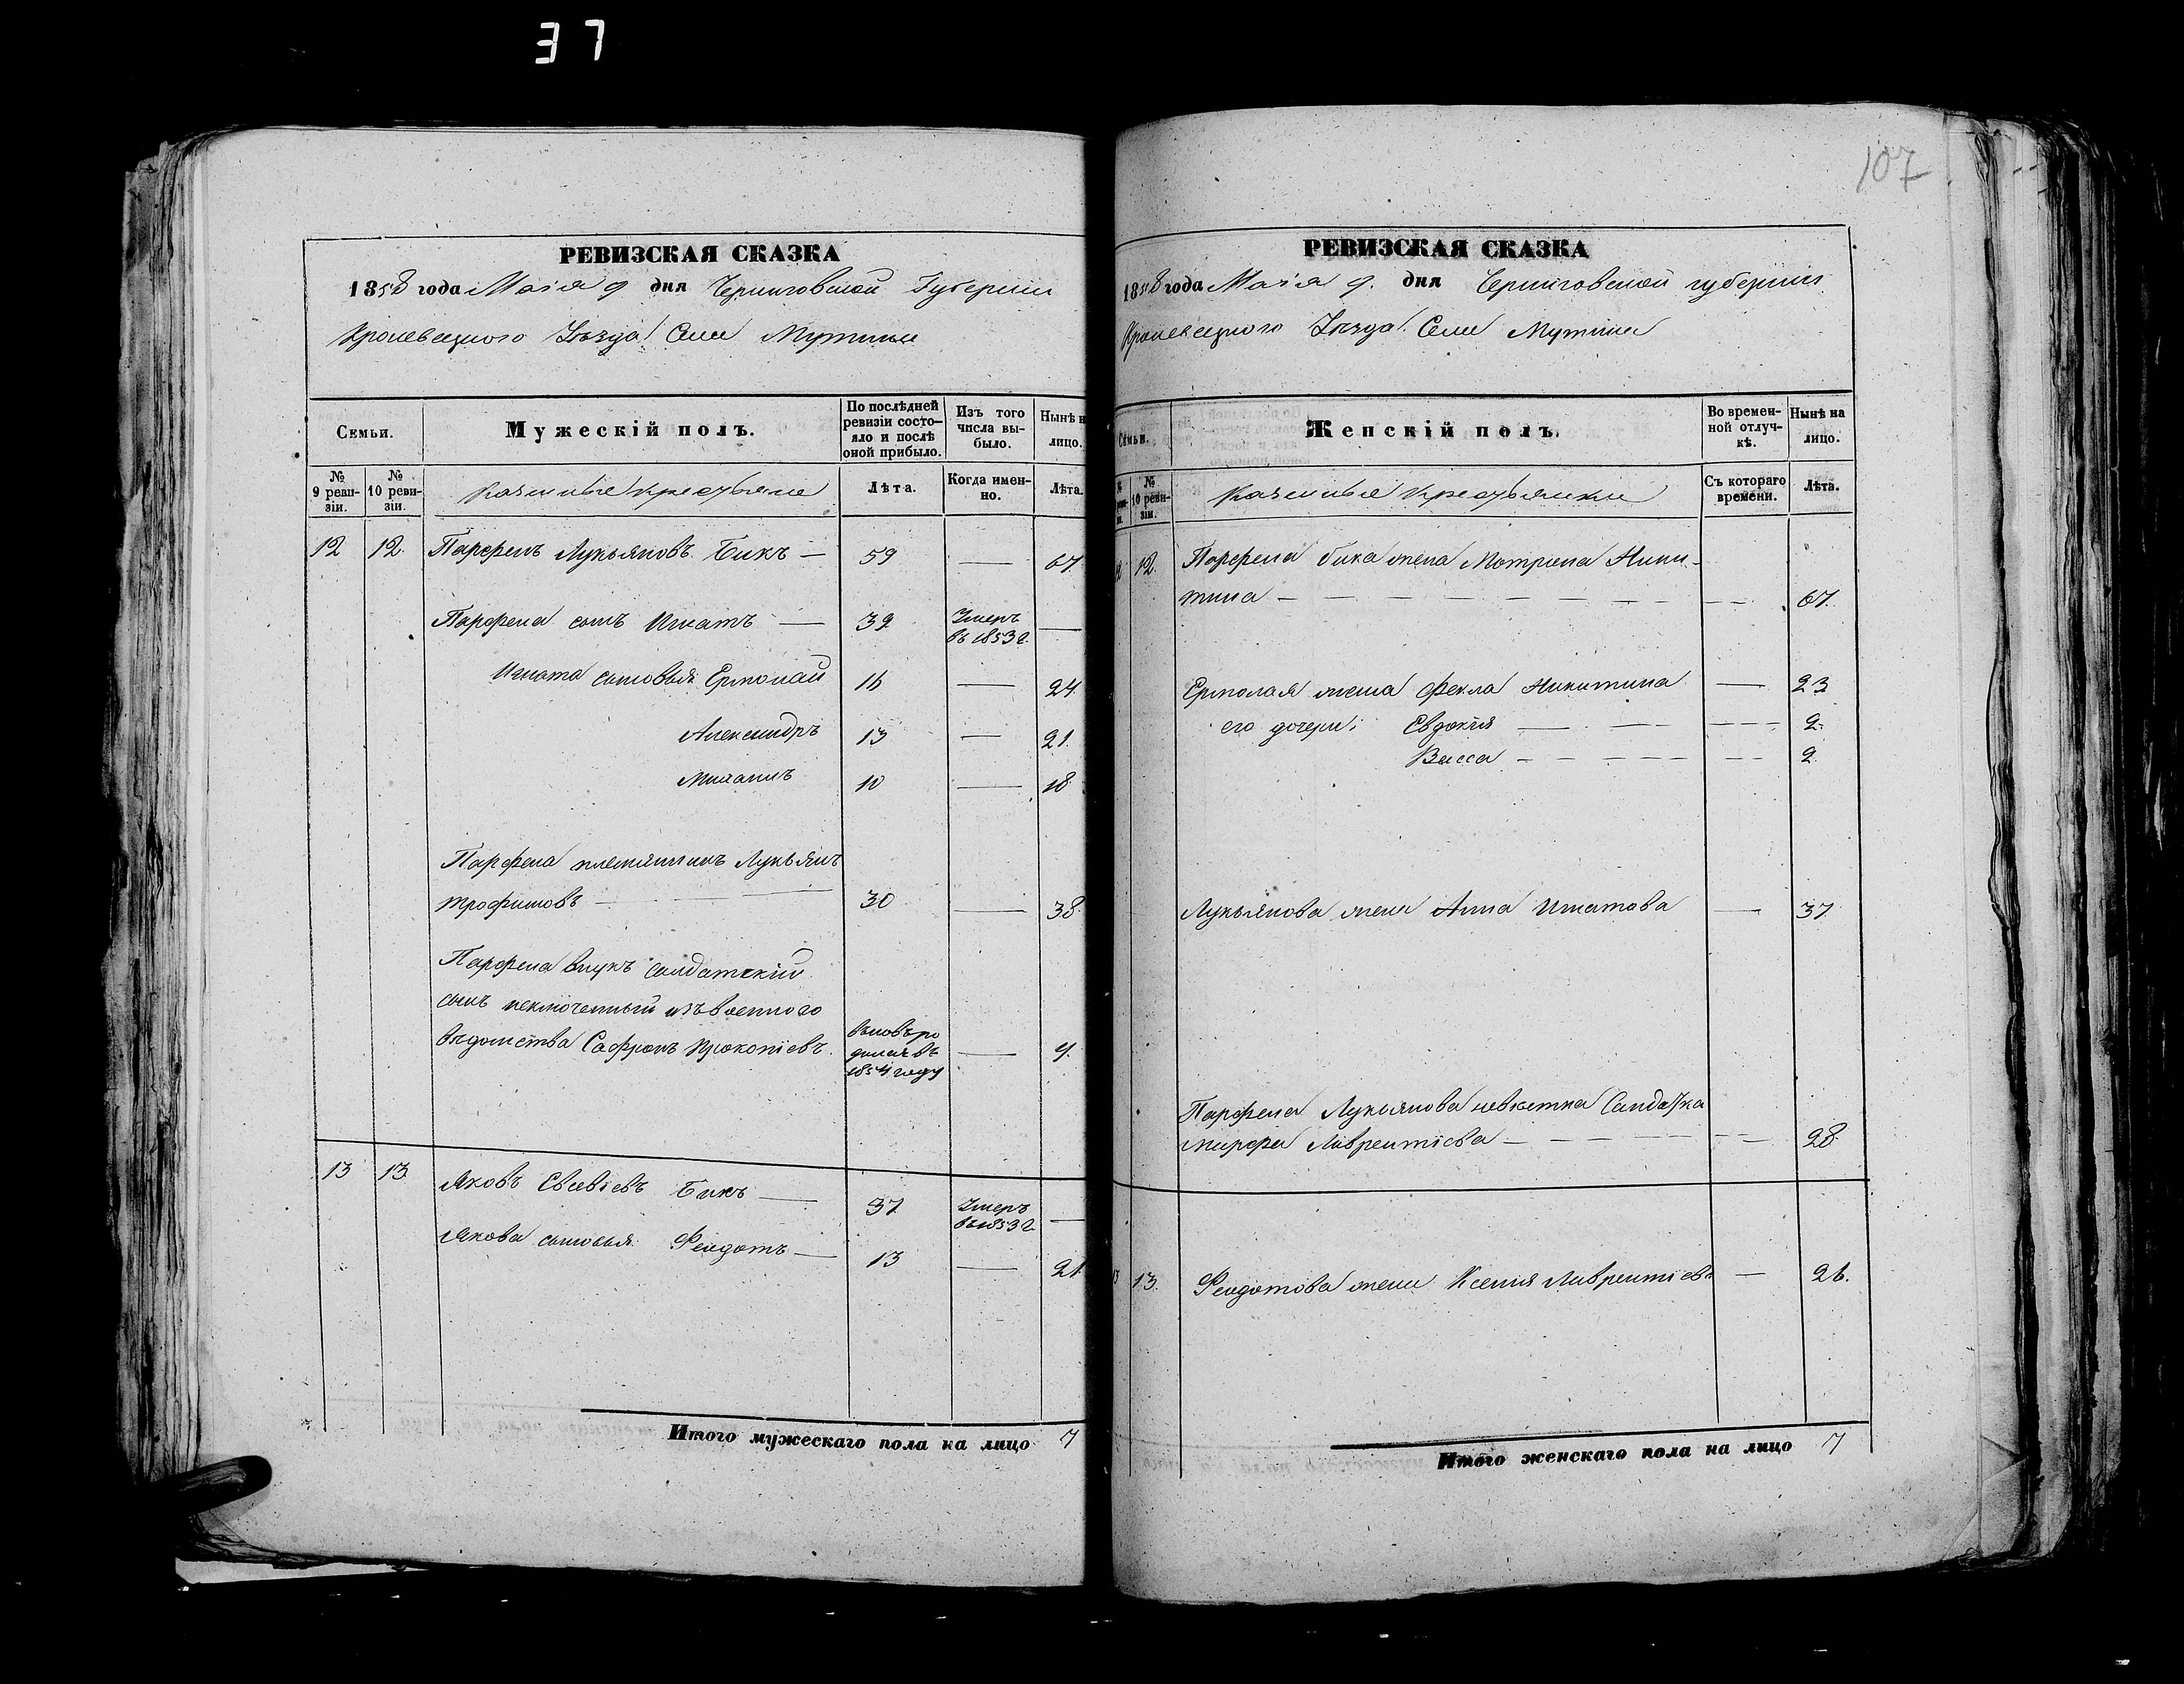 37
РЕВИЗСКАЯ СКАЗКА
1858 года Маія 9 дня Черниговской Губерніи
Кролевецкого Уѣзда Села Мутина
Семьи.
Мужескій полъ.
По послѣдней ревизіи состояло и послѣ оной прибыло.
Изъ того числа выбыло.
Нынѣ н лицо.
№ 9 ревизіи.
№ 10 ревизіи.
Казенные крестьяне
Лѣта.
Когда именно.
Лѣта.
12 12. Парфенъ Лукьяновъ Бикъ — 59 — 67.
Парфена сынъ Игнатъ — 39 Умеръ въ 1853 г. —
Игната сыновья Ермолай 16 — 24.
Александръ 13 — 21.
10 — 18.
Парфена племянникъ Лукьянъ
Трофимовъ — 30 — 38.
Парфена внукъ Солдатскій
сынъ исключенный изъ военного
вѣдомства Софронъ Прокопіевъ. вновь родился въ 1854 году — 4.
13 13 Яковъ Евсевіевъ Бикъ — 37 Умеръ въ 1853 г. —
Якова сыновья Феодотъ — 13 — 21
Итого мужескаго пола на лицо 7
107
РЕВИЗСКАЯ СКАЗКА
1858 года Маія 9. дня Черниговской губерніи
Кролевецкого Уѣзда. Села Мутина
Семьи.
Женскій полъ.
Во временной отлучкѣ.
Нынѣ на лицо.
№ 10 ревизіи.
Казенные Крестьянки
Съ котораго времени.
Лѣта.
12. Парфена Бика жена Мотрона Ники-
тина — — 67.
Ермолая жена Фекла Никитина — 23
его дочери: Евдокія — — 2.
Васса — — 2
Лукьянова жена Анна Игнатова — 37
Парфена Лукьянова невѣстка Солдатка
Марфа Лаврентіева — — 28.
13 13. Феодотова жена Ксенія Лаврентіева — 26.
Итого женскаго пола на лицо 7